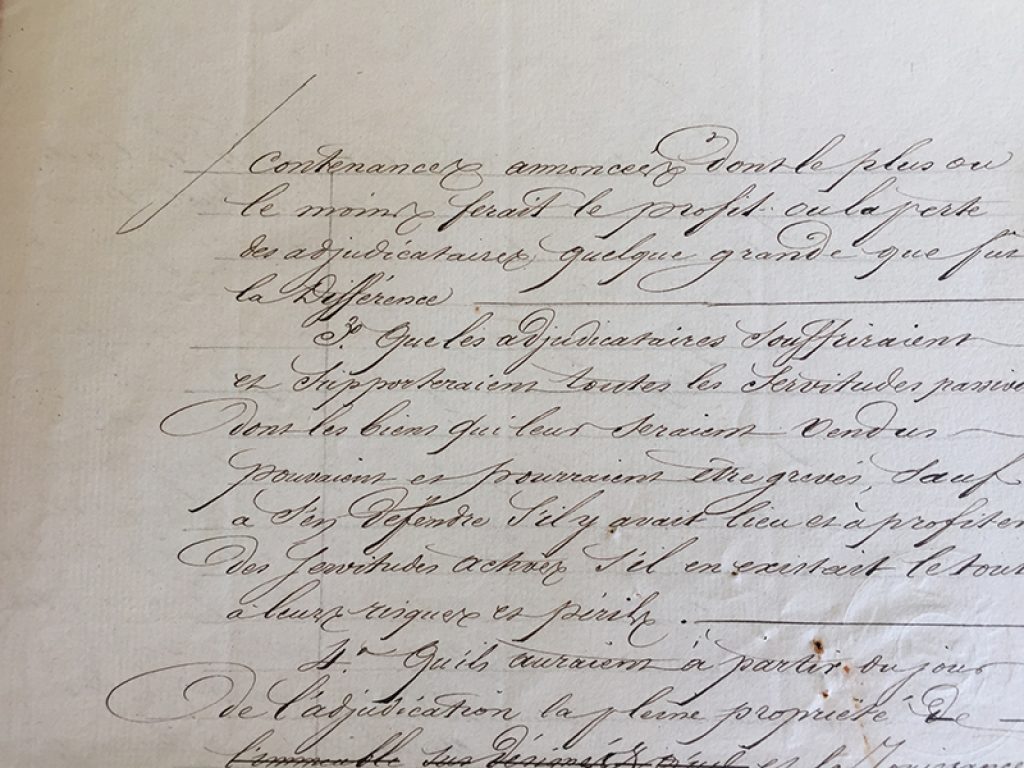 contenances annoncées dont le plus ou
le moins ferait le profit ou la perte
des adjudicataires quelque grande que fût
la Différence
3º Que les adjudicataires souffriraient
et supporteraient toutes les servitudes passives
dont les biens qui leur seraient vendus
pouvaient et pourraient être grevés, sauf
à s'en défendre s'il y avait lieu et à profiter
des servitudes actives s'il en existait le tout
à leurs risques et périls.
4º Qu'ils auraient à partir du jour
de l'adjudication la pleine propriété de
l'immeuble sus désigné et la jouissance